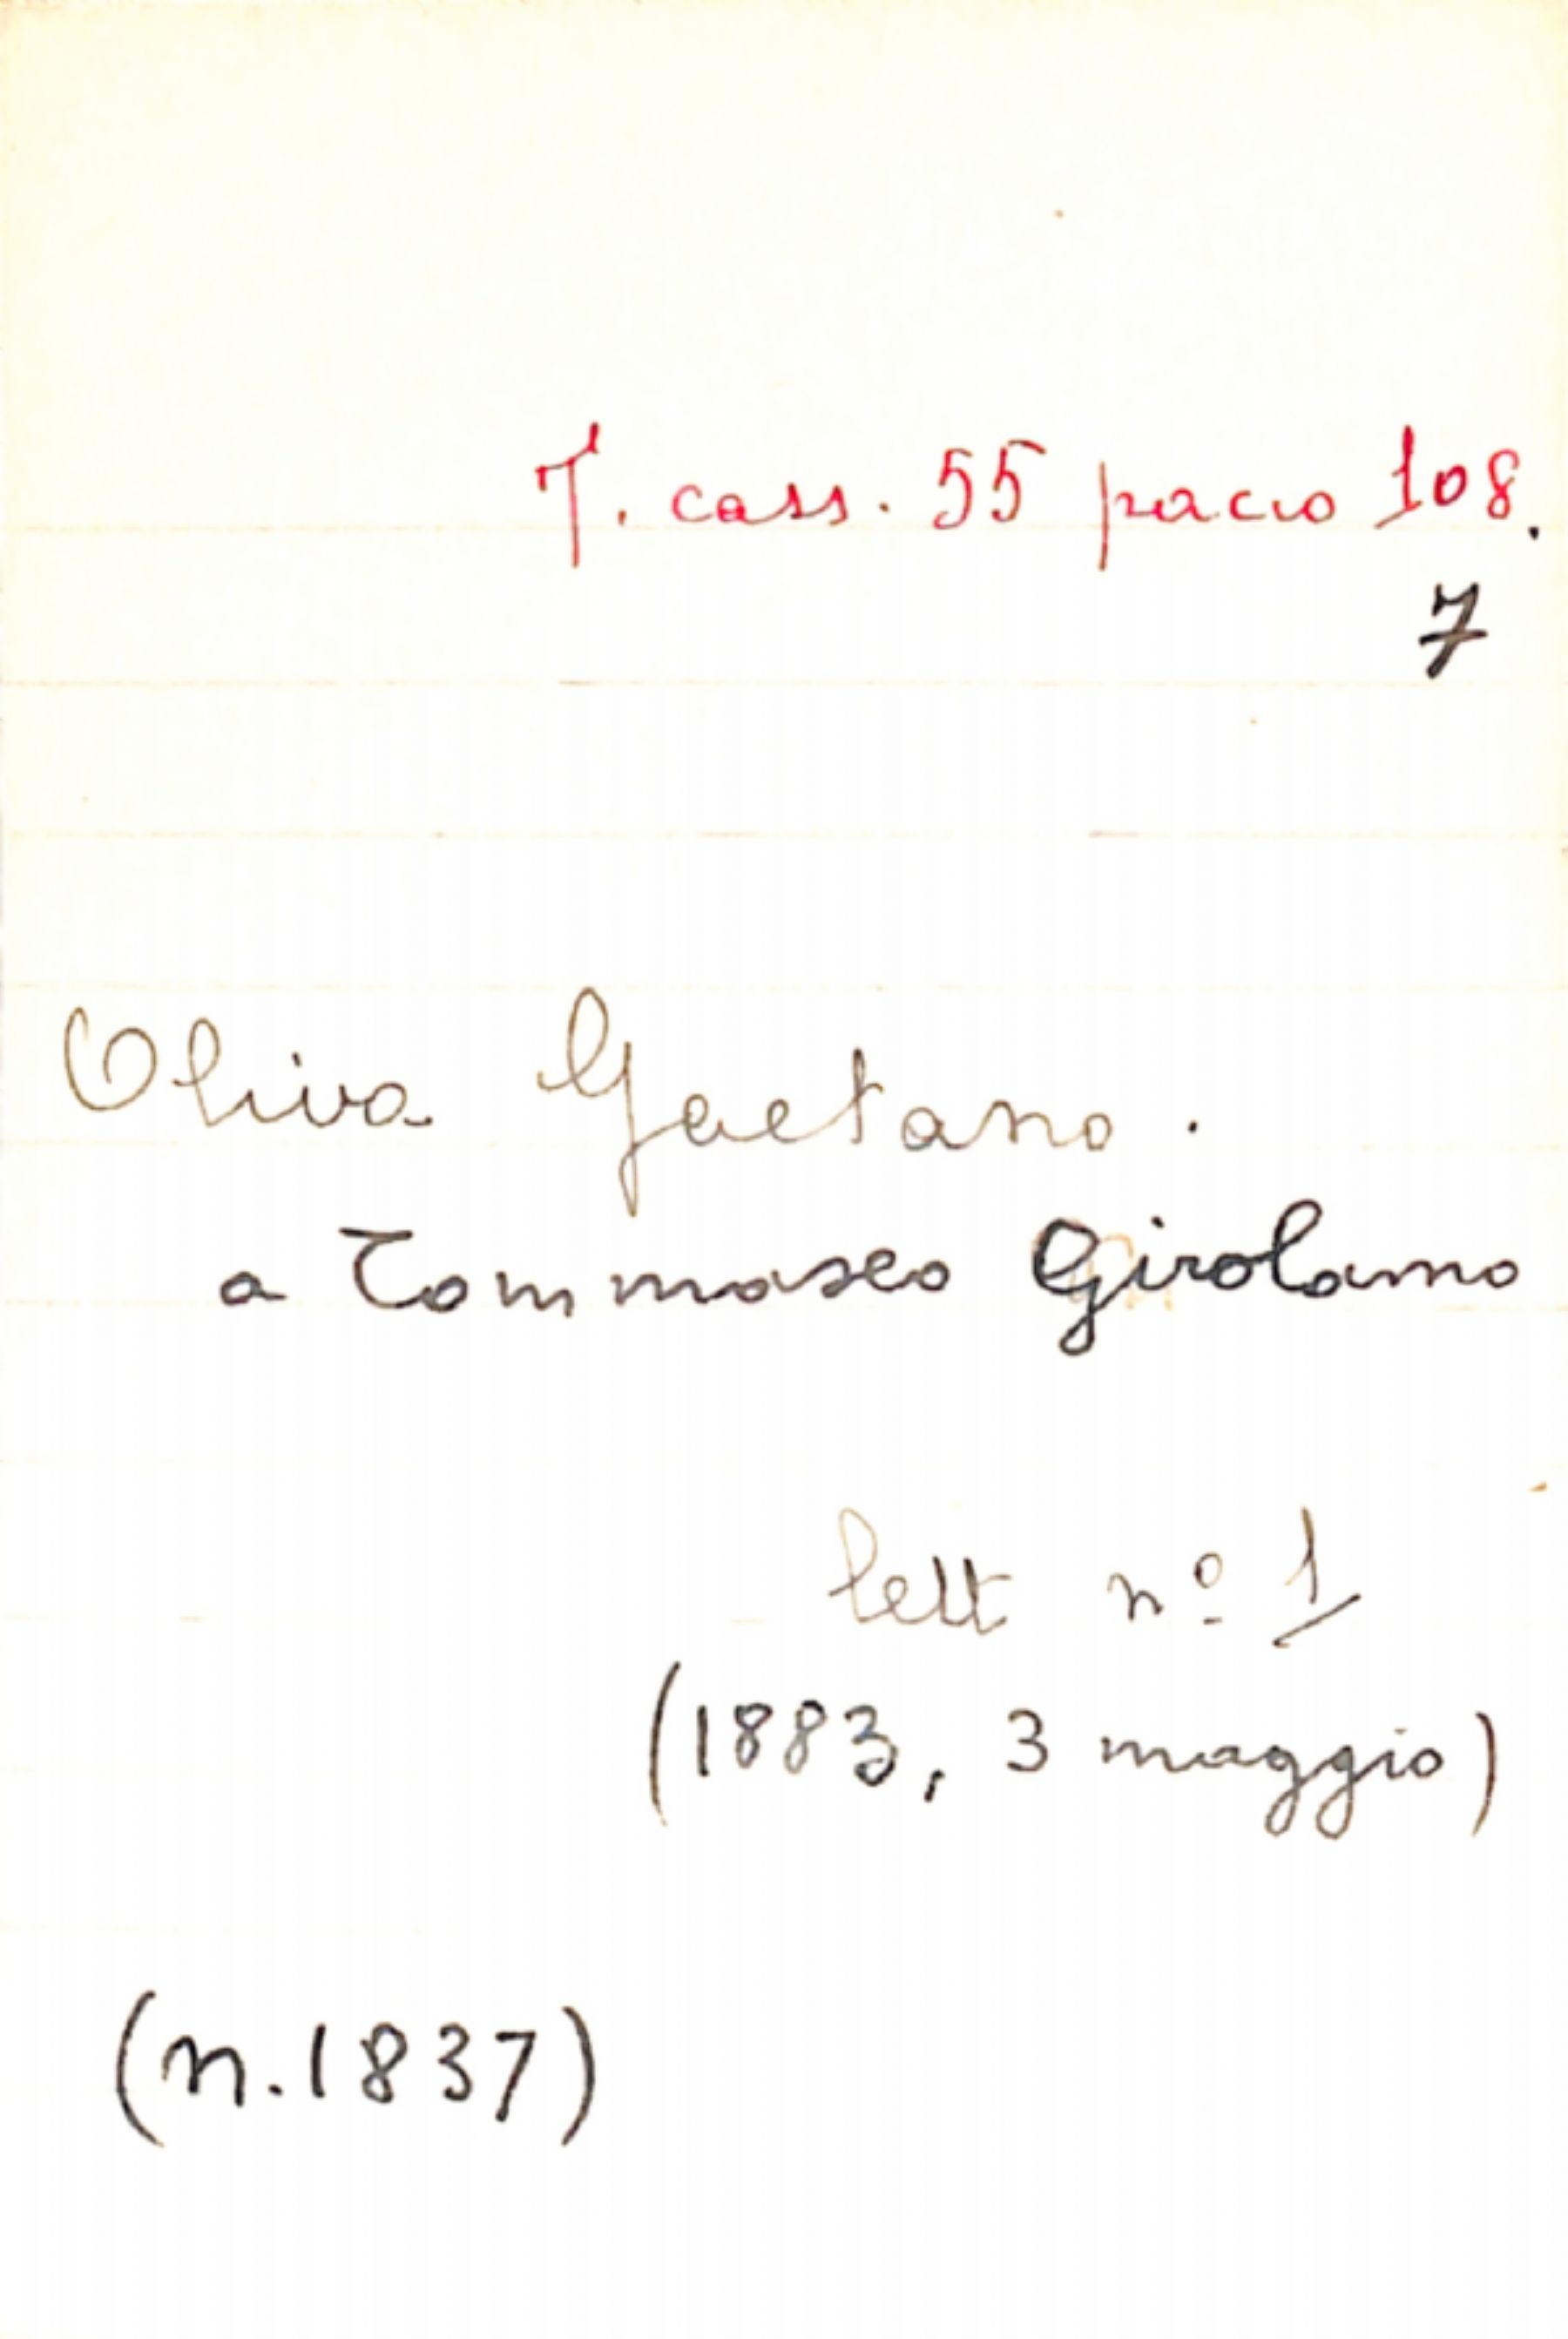 T. cass. 55 pacco 108.
7
Oliva Gaetano.
a Tommaseo Girolamo
lett nº 1
(1883, 3 maggio)
(n. 1837)